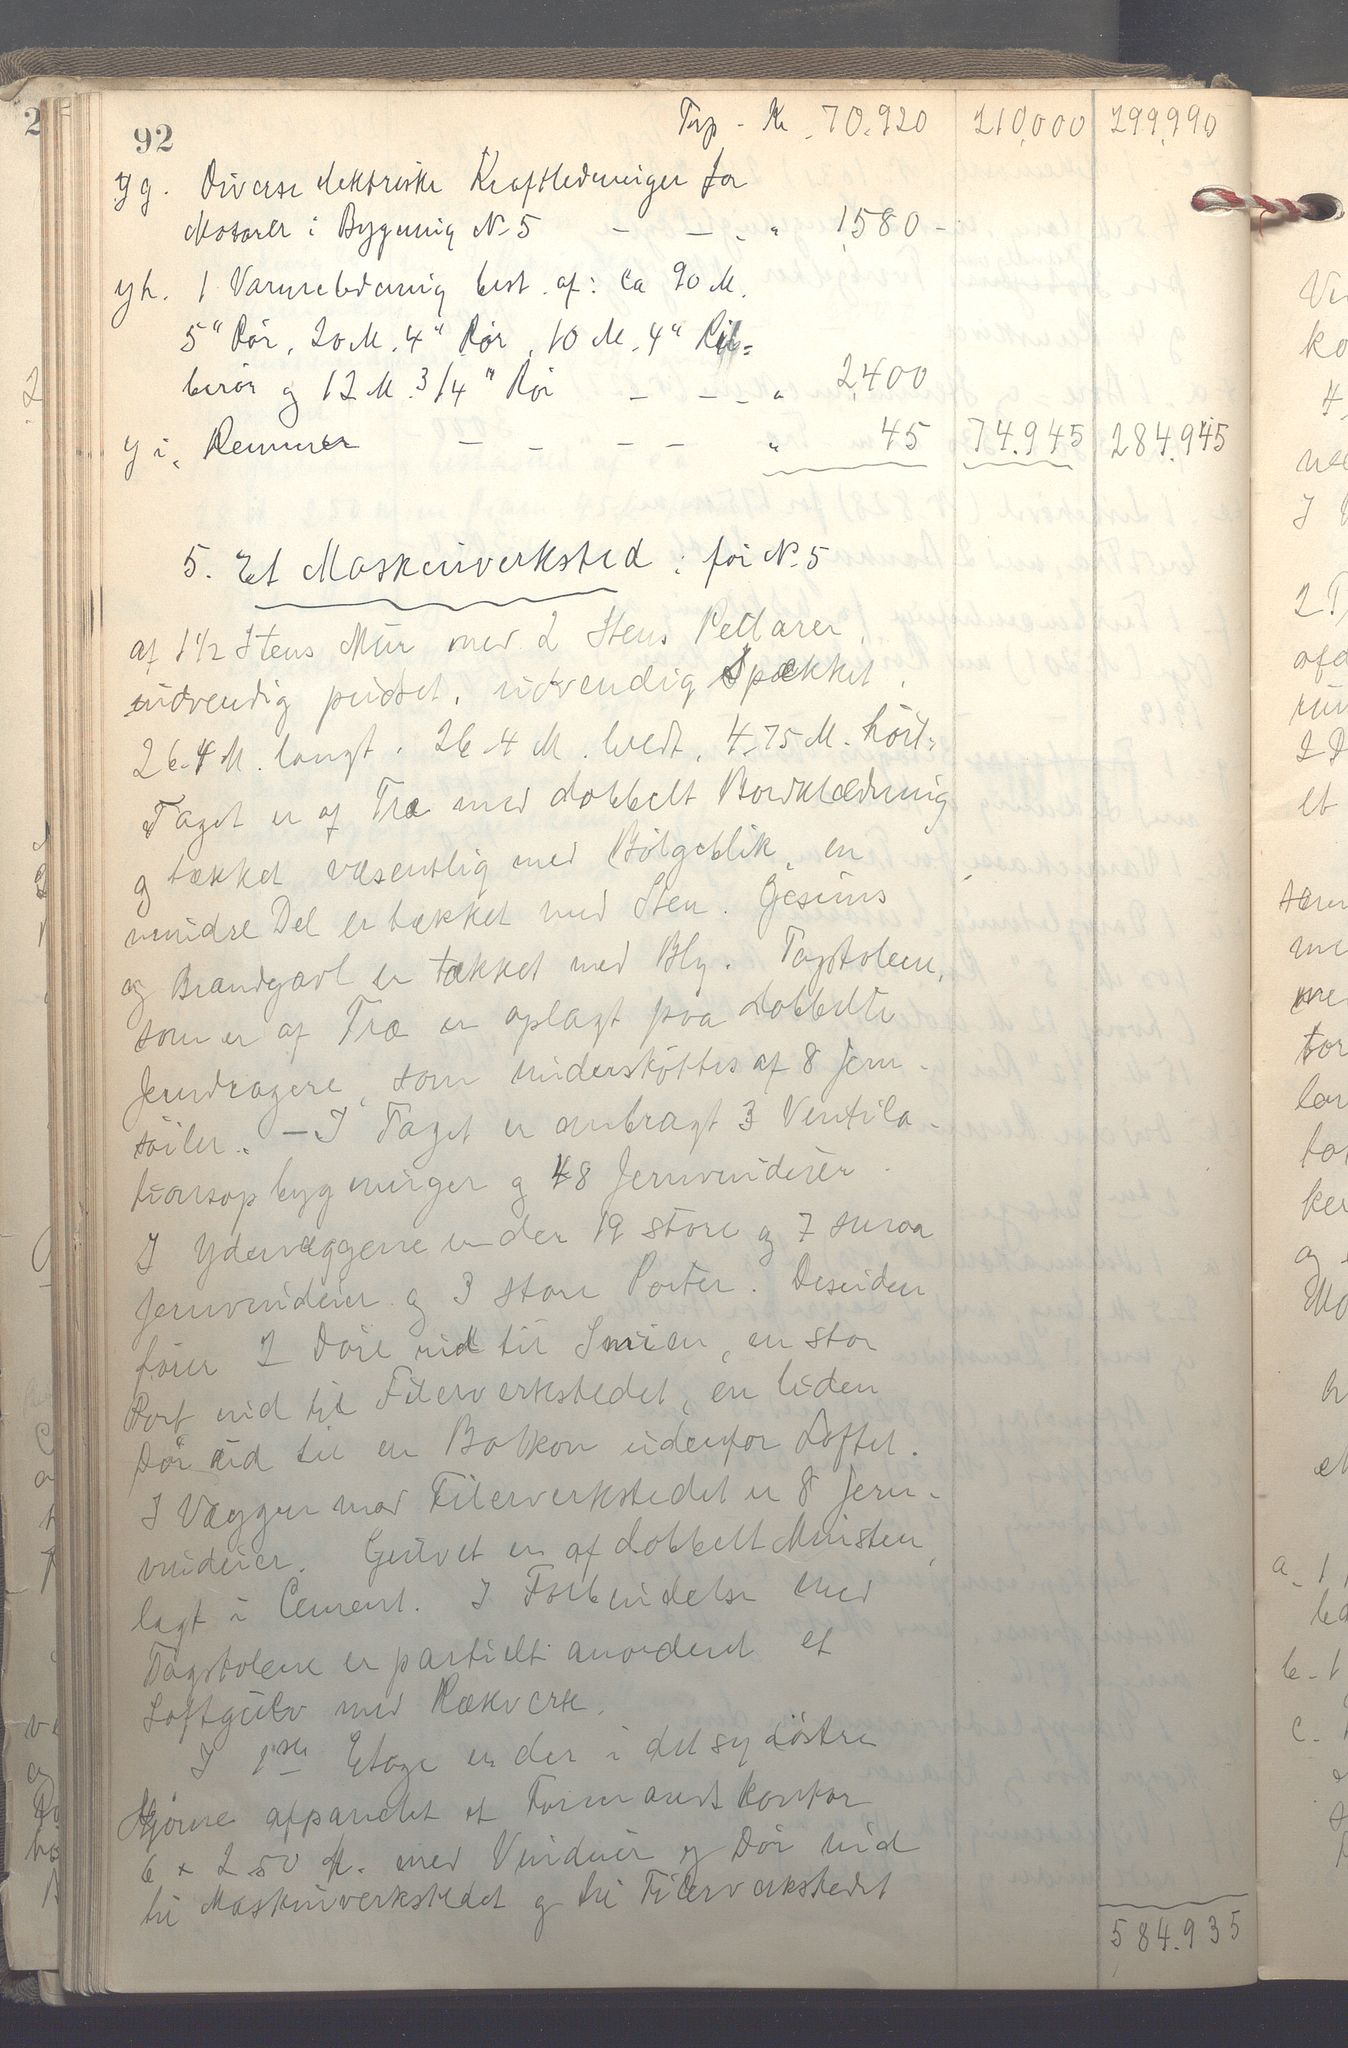 92
Trp - Kr. 70.920 210,000 299,990
yg. Diverse elektriske Kraftledninger for
Motorer i Bygning N. 5 - - - " 1580 -
yh. 1 Varmeledning best. af: ca 90 M.
5" Rör, 20 M. 4" Rör, 10 M. 4" Rib=
berör og 12 M. 3/4" Rör - - - " 2,400
yi. Remmer - - - - " 45 74.945 284.945
5. Et Maskinverksted: för N. 5
af 1 1/2 Stens Mur med 2 Stens Pillarer,
indvendig pudset, udvendig spækket.
26.4 M. langt. 26.4 M. bredt, 4.75 M. höit.
Taget er af Træ med dobbelt Bordklædning
og tækket væsentlig med Bölgeblik, en
mindre Del er tækket med Sten. Gesims
og Brandgavl er tækket med Bly. Tagstolene,
som er af Træ er oplagt paa dobbelte
Jerndragere, som understöttes af 8 Jern-
söiler. - I Taget er anbragt 3 Ventila-
tionsopbygninger og 48 Jernvinduer.
I Ydervæggene er der 19 store og 7 smaa
Jernvinduer og 3 store Porter. Desuden
förer 2 Döre ind til Smien, en stor
Port ind til Filerverkstedet, en liden
Dör ud til en Balkon udenfor Loftet.
I Væggen mod Filerverkstedet er 8 Jern-
vinduer. Gulvet er af dobbelt Mursten,
lagt i Cement. I Forbindelse med
Tagstolene er partielt anordnet et
Loftgulv med Rækverk.
I 1ste Etage er der i det sydöstre
Hjörne afpanelet et Formandskontor
6 x 2.50 M. med Vinduer og Dör ind
til Maskinverkstedet og til Filerverkstedet
584.935